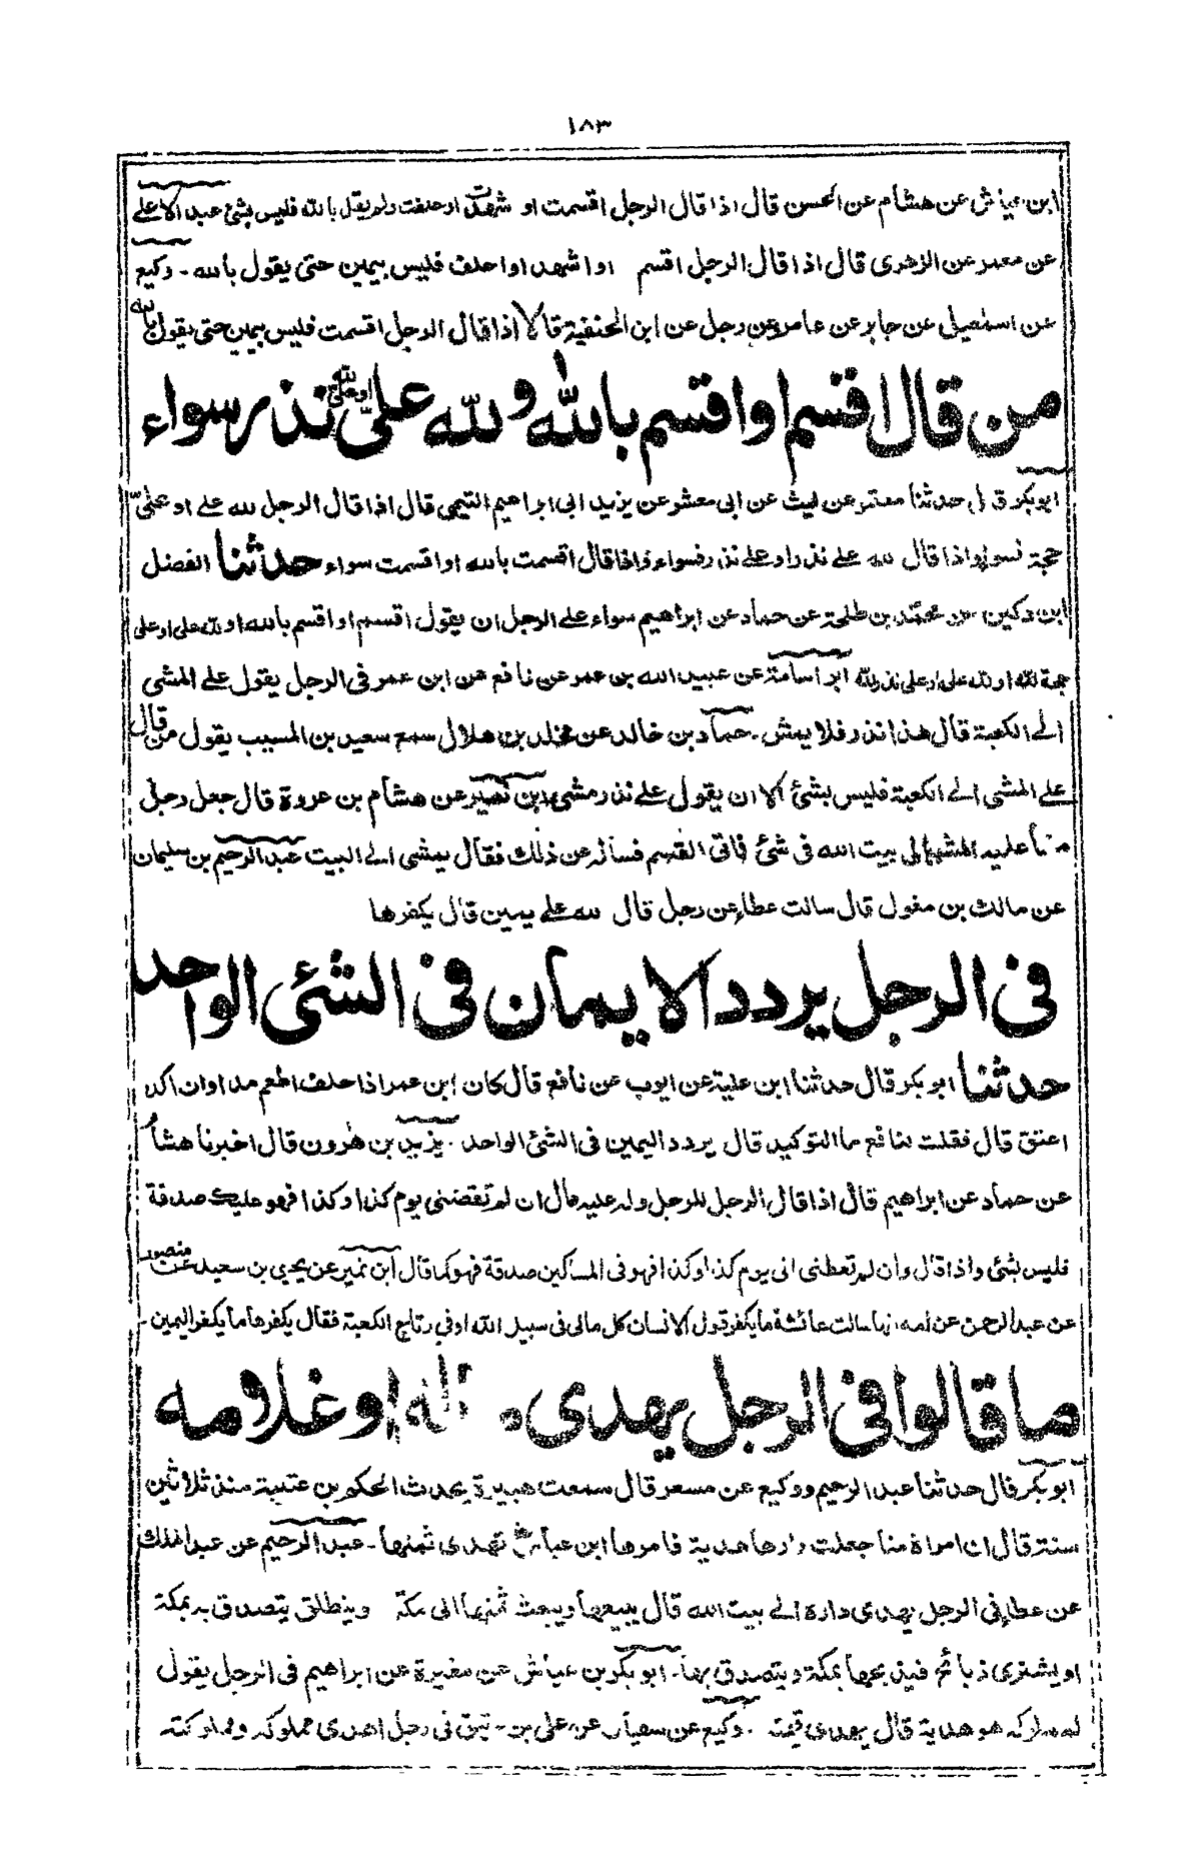 ١٨٣
ابن عياش عن هشام عن الحسن قال اذا قال الرجل اقسمت او شهدت او حلفت ولم يقل بالله فليس بشئ عبد الاعلى
عن معمر عن الزهرى قال اذا قال الرجل اقسم او اشهد او احلف فليس بيمين حتى يقول بالله - وكيع
عن اسمعيل عن جابر عن عامر وعن رجل عن ابن الحنفية قالا اذا قال الرجل اقسمت فليس بيمين حتى يقول بالله
من قال اقسم او اقسم بالله ولله على او على لله نذر سواء
ابو بكر قال حدثنا معتمر عن ليث عن ابى معشر عن يزيد ابى ابراهيم التيمى قال اذا قال الرجل لله على او علىّ
حجة فسواء واذا قال لله على نذر او على نذر فسواء واذا قال اقسمت بالله او اقسمت سواء حدثنا الفضل
ابن دكين عن محمد بن طلحة عن حماد عن ابراهيم سواء على الرجل ان يقول اقسم او اقسم بالله او لله على او على
حجة لله او لله على او على نذر لله ابو اسامة عن عبيد الله بن عمر عن نافع عن ابن عمر فى الرجل يقول على المشى
الى الكعبة قال هذا نذر فلا يمش - حماد بن خالد عن محمد بن هلال سمع سعيد بن المسيب يقول من قال
على المشى الى الكعبة فليس بشئ الا ان يقول على نذر مشى ابن نمير عن هشام بن عروة قال جعل رجل
منا عليه المشى الى بيت الله فى شئ فاتى القسم فساله عن ذلك فقال يمشى الى البيت عبد الرحيم بن سليمان
عن مالك بن مغول قال سالت عطاء عن رجل قال لله على يمين قال يكفرها
فى الرجل يردد الايمان فى الشئ الواحد
حدثنا ابو بكر قال حدثنا ابن علية عن ايوب عن نافع قال كان ابن عمر اذا حلف اطعم مدا وان اكد
اعتق قال فقلت لنافع ما التوكيد قال يردد اليمين فى الشئ الواحد - يزيد بن هرون قال اخبرنا هشام
عن حماد عن ابراهيم قال اذا قال الرجل للرجل وله عليه مال ان لم تقضنى يوم كذا وكذا فهو عليك صدقة
فليس بشئ واذا قال وان لم تعطنى الى يوم كذا وكذا فهو فى المساكين صدقة فهو كما قال ابن نمير عن يحيى بن سعيد عن منصور
عن عبد الرحمن عن امه انها سالت عائشة ما يكفر قول الانسان كل مالى فى سبيل الله او فى رتاج الكعبة فقال يكفرها ما يكفر اليمين -
ما قالوا فى الرجل يهدى او غلامه
ابو بكر قال حدثنا عبد الرحيم ووكيع عن مسعر قال سمعت هبيرة يحدث الحكم بن عتيبة منذ ثلاثين
سنة قال ان امراة منا جعلت دارها هدية فامرها ابن عباس تهدى ثمنها - عبد الرحيم عن عبد الملك
عن عطاء فى الرجل يهدى داره الى بيت الله قال يبيعها ويبعث ثمنها الى مكة وينطلق يتصدق به بمكة
او يشترى ذبائح فيذبحها بمكة ويتصدق بها - ابو بكر بن عياش عن مغيرة عن ابراهيم فى الرجل يقول
هو هدية قال يهدى قيمته - وكيع عن سفيان عن على بن فى رجل اهدى مملوكه ومملوكته